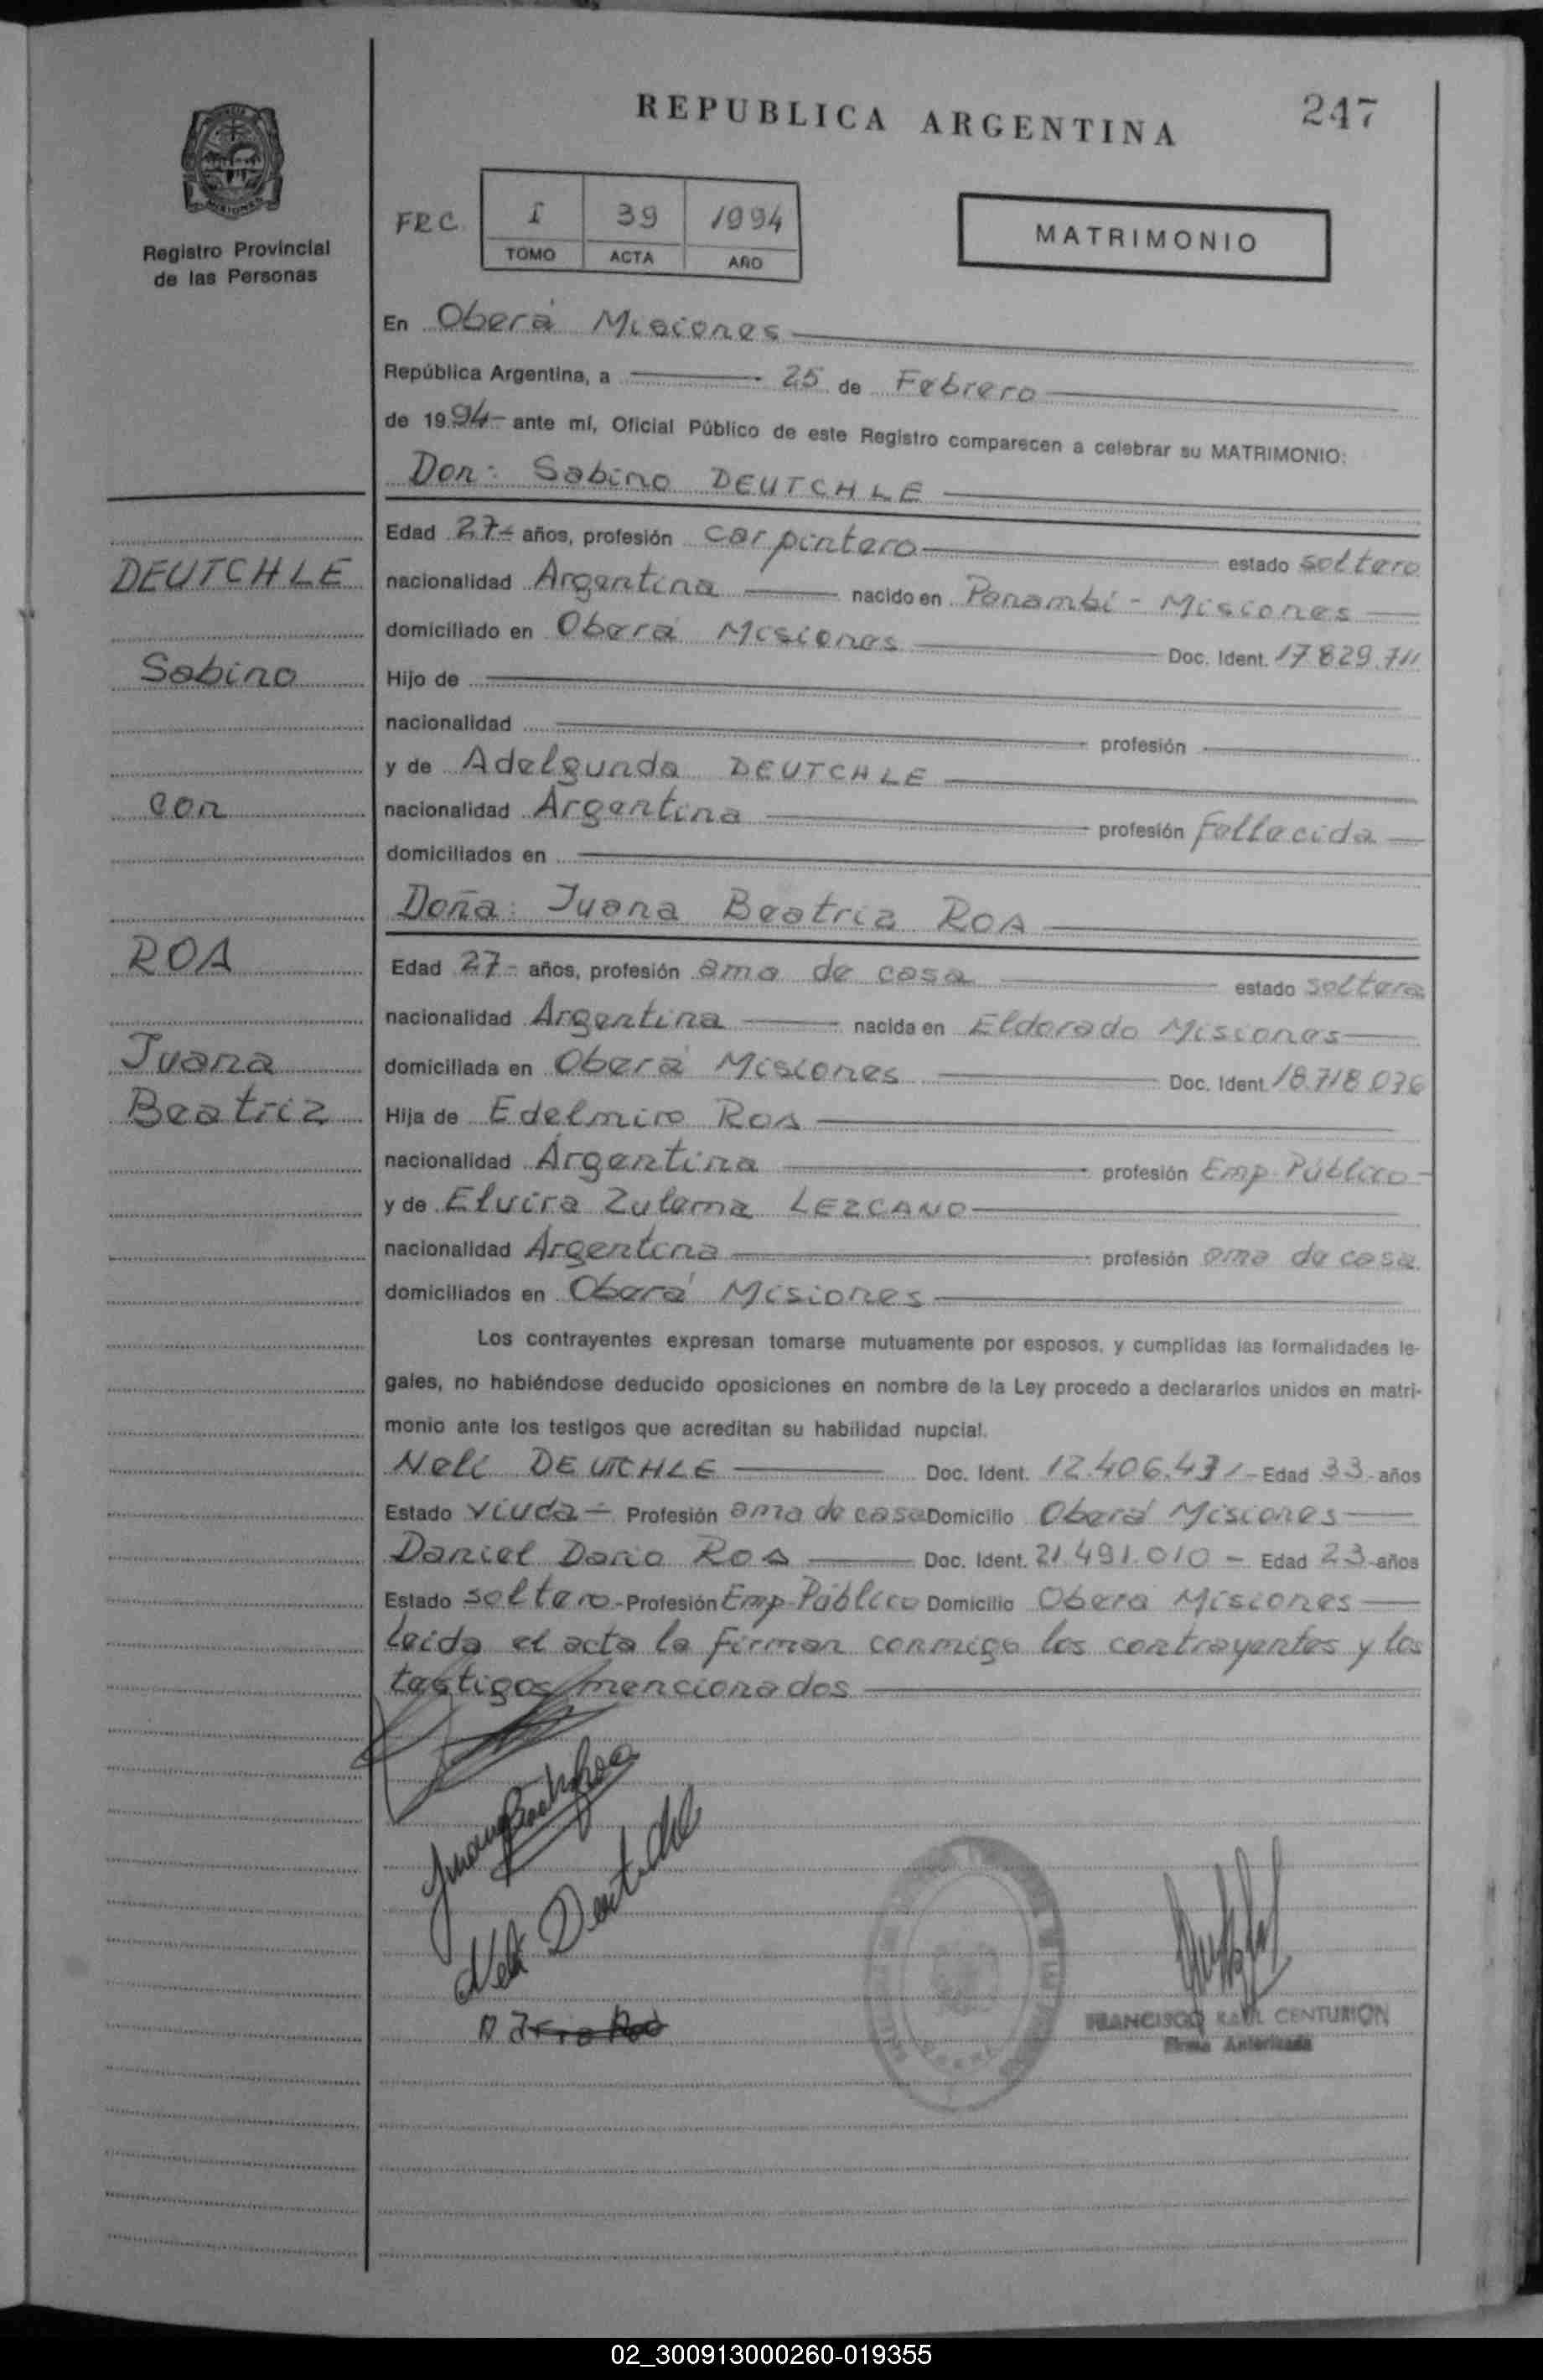 REPUBLICA ARGENTINA
247
MISIONES
Registro Provincial
de las Personas
FRC
I 39 1994
TOMO ACTA AÑO
MATRIMONIO
En Oberá Misiones
República Argentina, a 25 de Febrero
de 1994 ante mí, Oficial Público de este Registro comparecen a celebrar su MATRIMONIO:
Don: Sabino DEUTCHLE
Edad 27 años, profesión carpintero estado soltero
DEUTCHLE
nacionalidad Argentina nacido en Panambí - Misiones
domiciliado en Oberá Misiones Doc. Ident. 17.829.711
Sabino
Hijo de
nacionalidad profesión
y de Adelgunda DEUTCHLE
con
nacionalidad Argentina profesión fallecida
domiciliados en
Doña: Juana Beatriz ROA
ROA
Edad 27 años, profesión ama de casa estado soltera
nacionalidad Argentina nacida en Eldorado Misiones
Juana
domiciliada en Oberá Misiones Doc. Ident. 18.718.036
Beatriz
Hija de Edelmiro ROA
nacionalidad Argentina profesión Emp. Público
y de Elvira Zulema LEZCANO
nacionalidad Argentina profesión ama de casa
domiciliados en Oberá Misiones
Los contrayentes expresan tomarse mutuamente por esposos, y cumplidas las formalidades le-
gales, no habiéndose deducido oposiciones en nombre de la Ley procedo a declararlos unidos en matri-
monio ante los testigos que acreditan su habilidad nupcial.
Neli DEUTCHLE Doc. Ident. 12.406.431 Edad 33 años
Estado viuda Profesión ama de casa Domicilio Oberá Misiones
Daniel Dario ROA Doc. Ident. 21.491.010 Edad 23 años
Estado soltero Profesión Emp. Público Domicilio Oberá Misiones
leida el acta la firman conmigo los contrayentes y los
testigos mencionados
Juana Beatriz Roa
Neli Deutchle
D Dario Roa
FRANCISCO RAUL CENTURION
Firma Autorizada
02_300913000260-019355